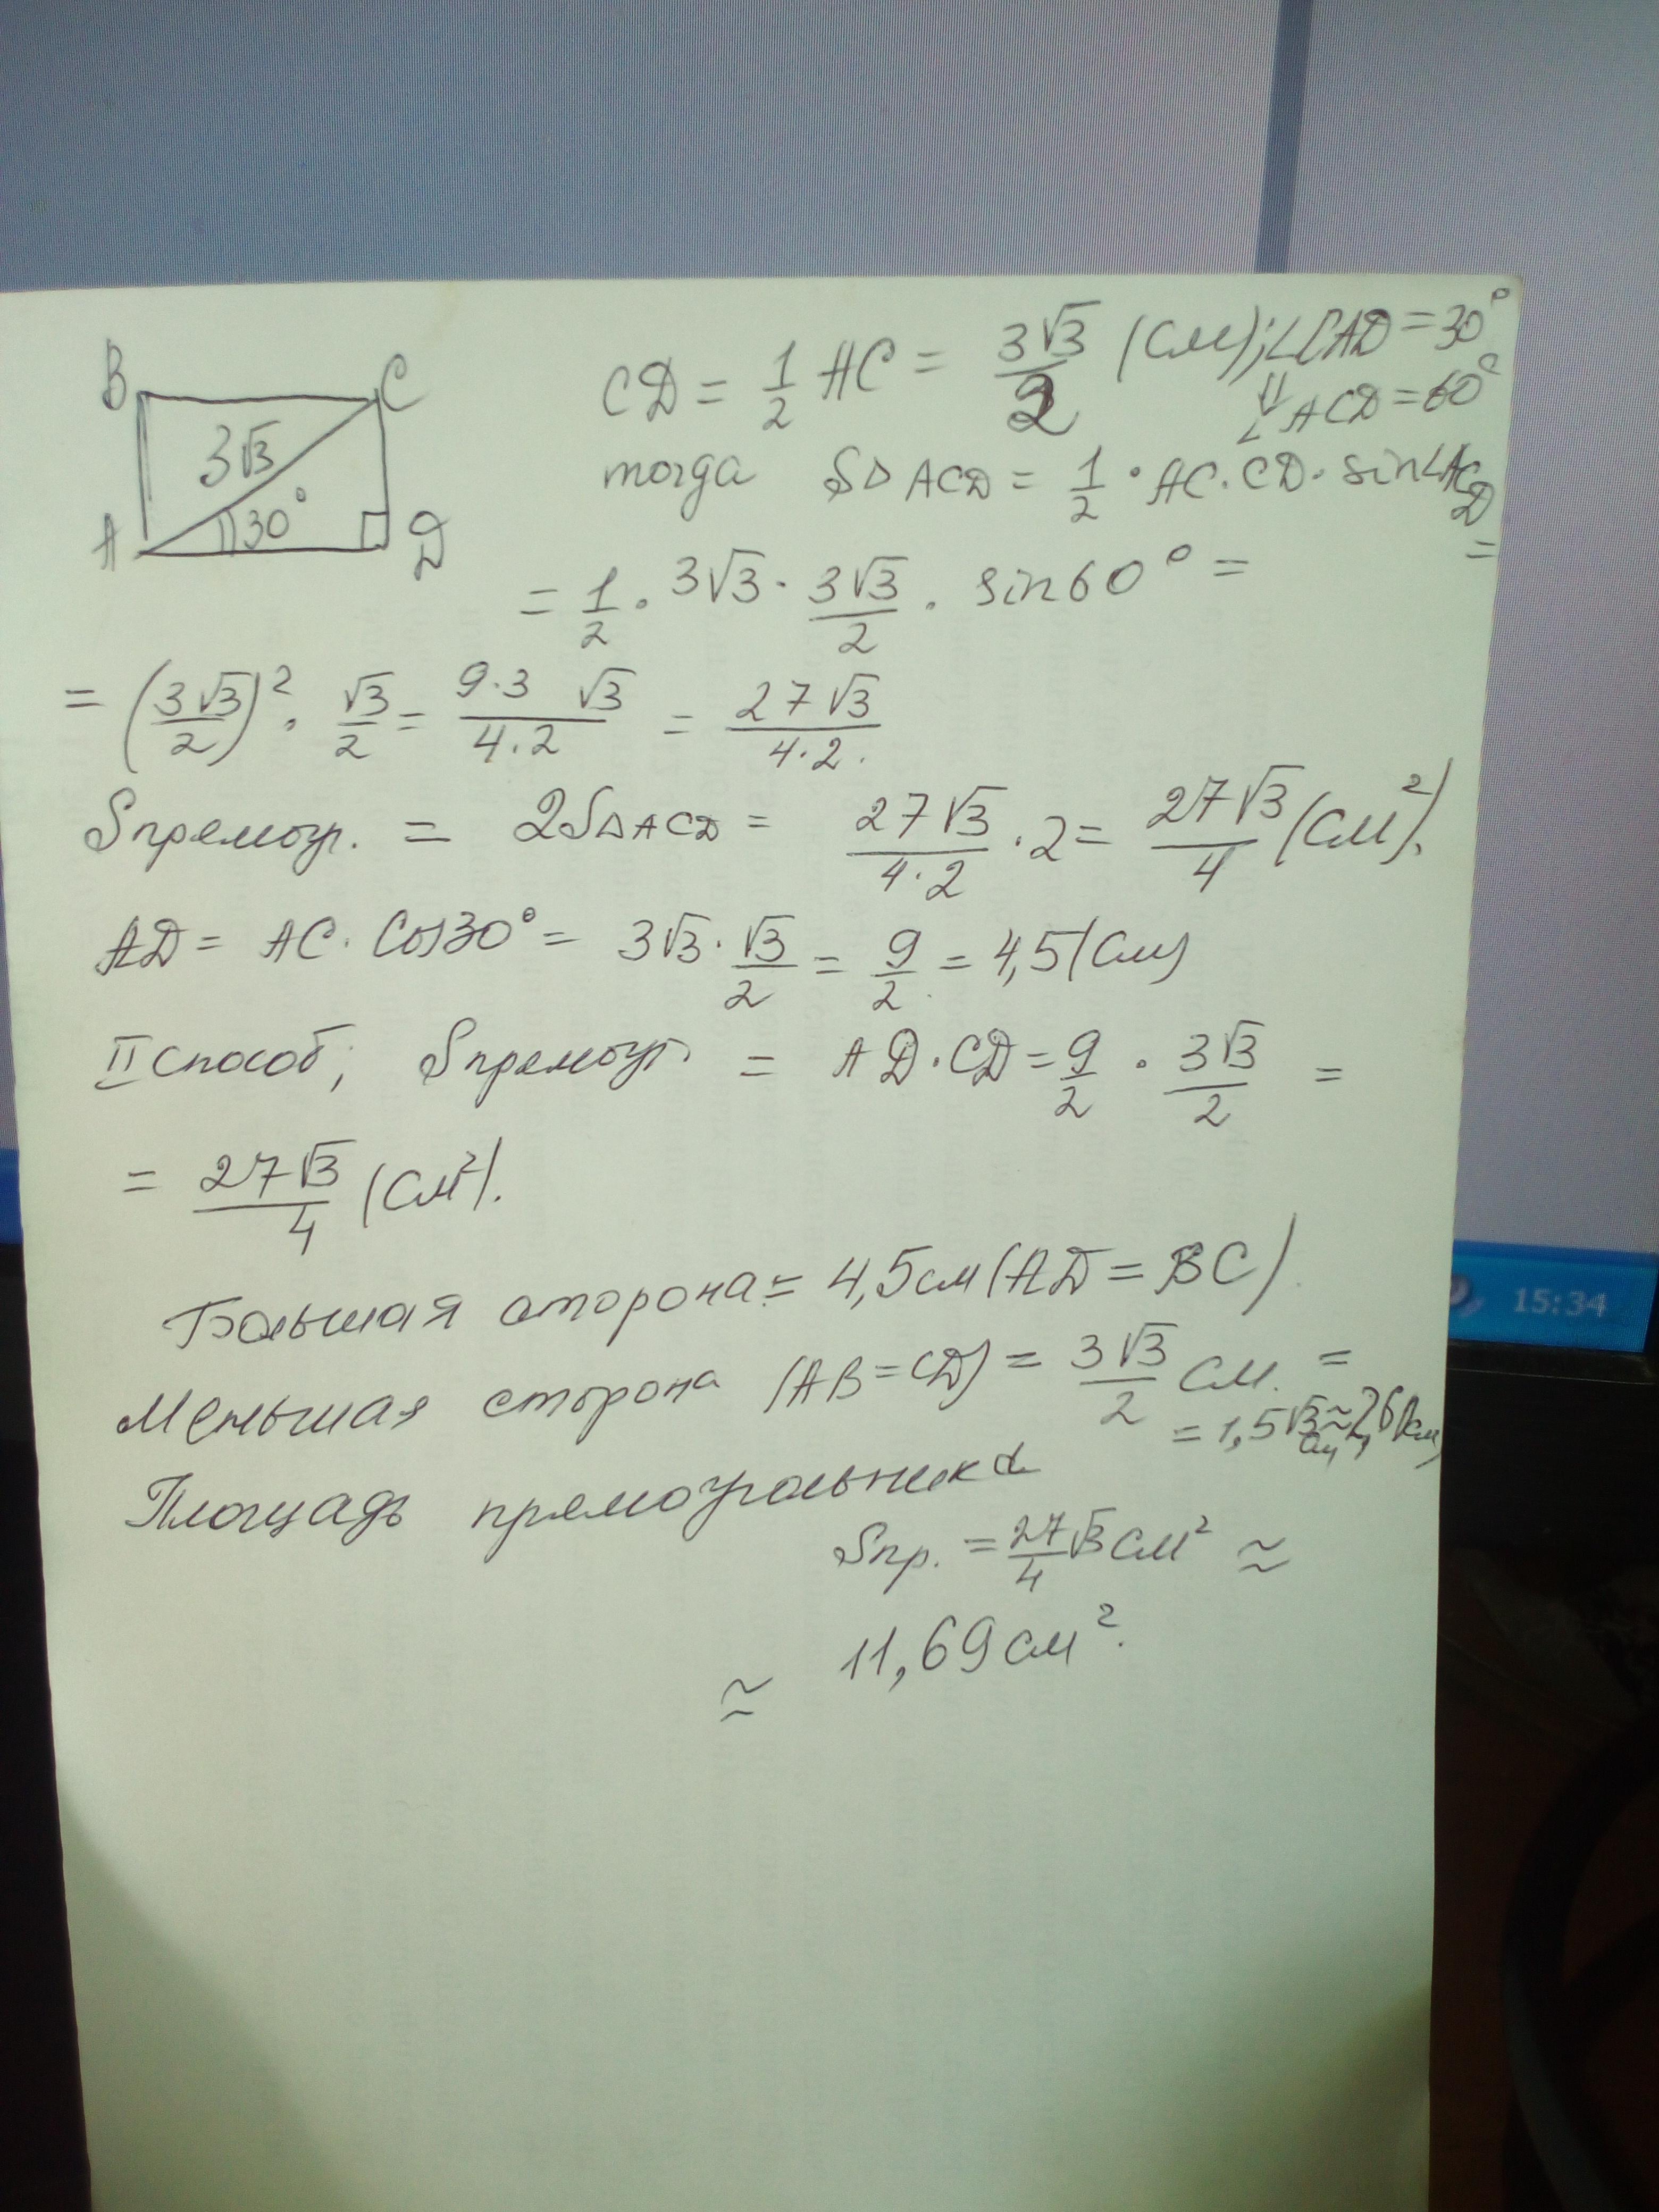 B C
3√3
30°
A D
CD = 1/2 AC = 3√3/2 (см); ∠CAD = 30°
⇓
∠ACD = 60°
тогда S△ACD = 1/2 · AC · CD · sin∠ACD =
= 1/2 · 3√3 · 3√3/2 · sin60° =
= (3√3/2)² · √3/2 = 9·3 √3/4·2 = 27√3/4·2.
Sпрямоуг. = 2S△ACD = 27√3/4·2 · 2 = 27√3/4 (см²).
AD = AC · Cos30° = 3√3 · √3/2 = 9/2 = 4,5 (см)
II способ; Sпрямоуг. = AD · CD = 9/2 · 3√3/2 =
= 27√3/4 (см²).
Большая сторона = 4,5 см (AD = BC).
Меньшая сторона (AB = CD) = 3√3/2 см. =
= 1,5√3 ≈ 2,6 (см)
Площадь прямоугольника
Sпр. = 27/4 √3 см² ≈
≈ 11,69 см².
15:34